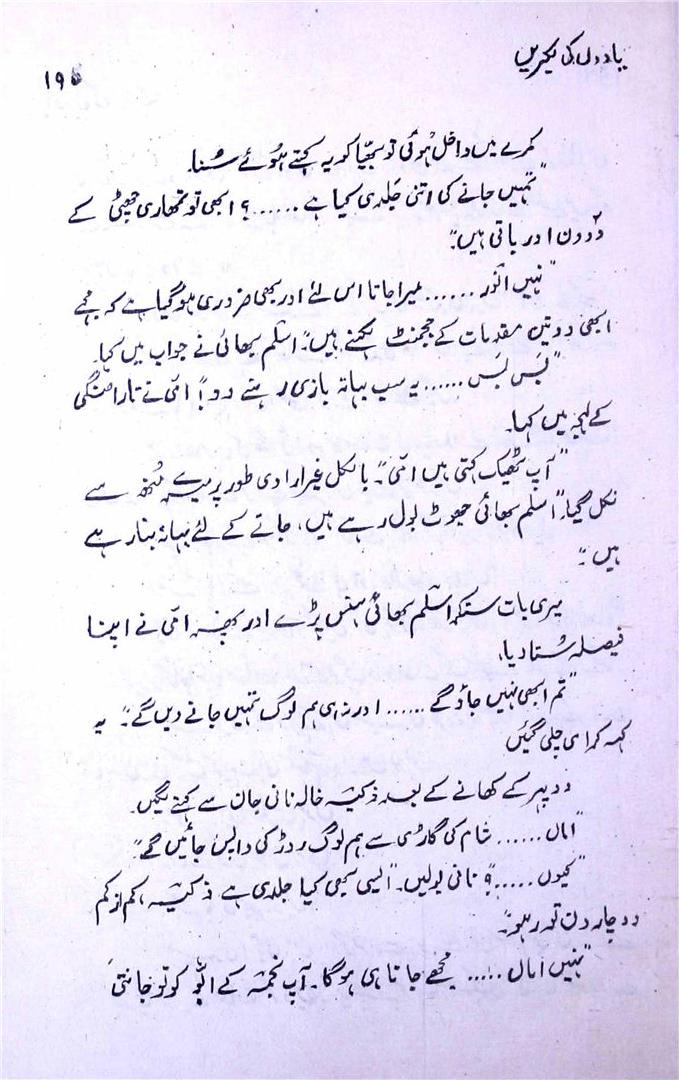 یادوں کی لکیریں
۱۹۵
کمرے میں داخل ہوئی تو بھیّا کو یہ کہتے ہوئے سُنا۔
"تمہیں جانے کی اتنی جَلدی کیا ہے ......؟ ابھی تو تمھاری چھٹی کے
دو دن اور باقی ہیں"۔
"نہیں انور ...... میرا جانا اس لئے اور بھی ضروری ہو گیا ہے کہ مجھے
ابھی دو تین مقدمات کے ججمنٹ لکھنے ہیں"۔ اسلم بھائی نے جواب میں کہا۔
"بَس بَس ...... یہ سب بہانہ بازی رہنے دو"۔ امّی نے ناراضگی
کے لہجہ میں کہا۔
"آپ ٹھیک کہتی ہیں امّی"۔ بالکل غیر ارادی طور پر میرے مُنھ سے
نکل گیا۔ "اسلم بھائی جھوٹ بول رہے ہیں، جانے کے لئے بہانہ بنا رہے
ہیں"۔
میری بات سنکر اسلم بھائی ہنس پڑے اور پھر امّی نے اپنا
فیصلہ سُنا دیا۔
"تم ابھی نہیں جاؤ گے ...... اور نہ ہی ہم لوگ تمہیں جانے دیں گے"۔ یہ
کہہ کر امی چلی گئیں
دوپہر کے کھانے کے بعد ذکیہ خالہ نانی جان سے کہنے لگیں۔
"اماں ...... شام کی گاڑی سے ہم لوگ رڑکی واپس جائیں گے"۔
"کیوں .....؟" نانی بولیں۔ "ایسی بھی کیا جلدی ہے ذکیہ، کم از کم
دو چار دن تو رہو"۔
"نہیں اماں ..... مجھے جانا ہی ہوگا۔ آپ نجمہ کے ابّو کو تو جانتی